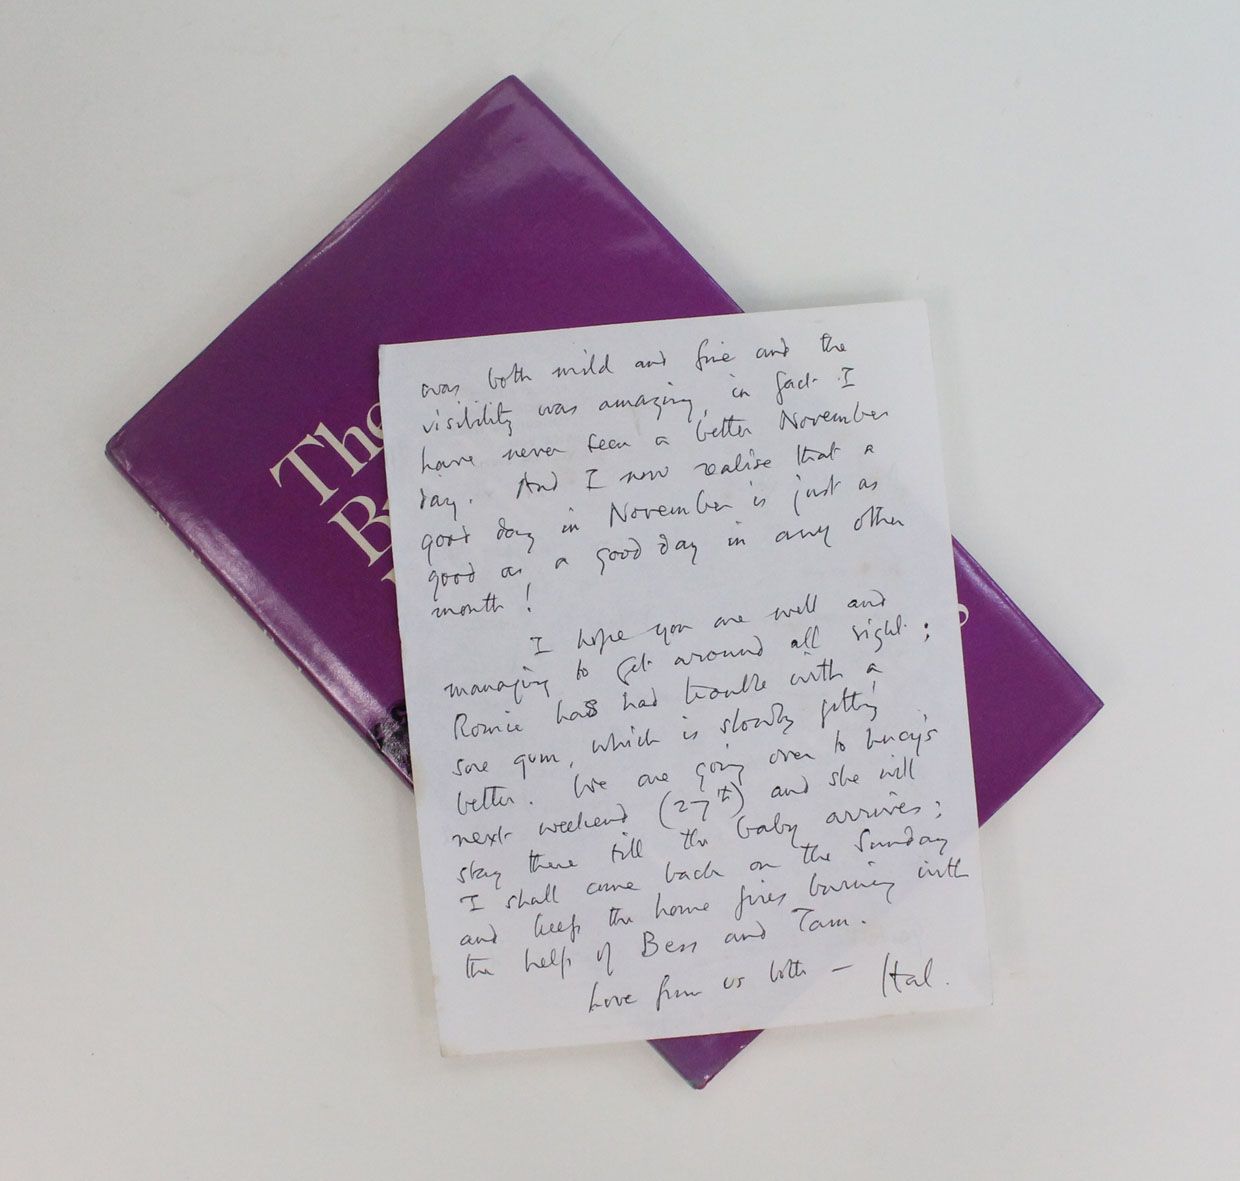 The
B
was both mild and fine and the
visibility was amazing, in fact I
have never seen a better November
day. And I now realise that a
good day in November is just as
good as a good day in any other
month!
I hope you are well and
managing to get around all right;
has had trouble with a
sore gum, which is slowly getting
better. We are going over to Lucy's
next weekend (27th) and she will
stay there till the baby arrives;
I shall come back on the Sunday
and keep the home fires burning with
the help of Bess and Tam.
Love from us both — Hal.